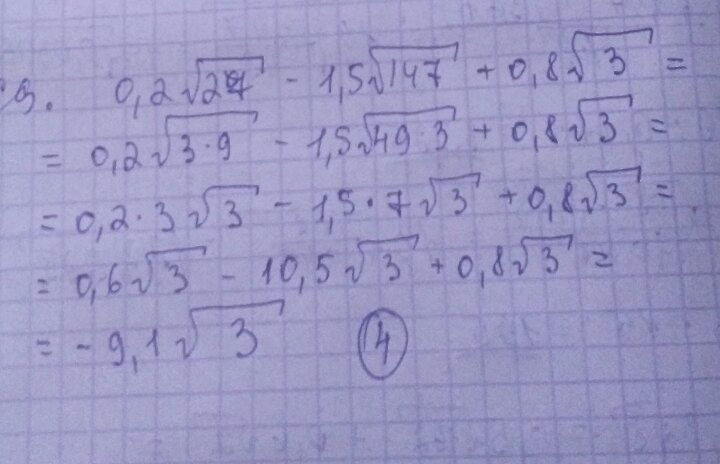 9. 0,2√27 - 1,5√147 + 0,8√3 =
= 0,2√3·9 - 1,5√49·3 + 0,8√3 =
= 0,2·3√3 - 1,5·7√3 + 0,8√3 =
= 0,6√3 - 10,5√3 + 0,8√3 =
= -9,1√3 4